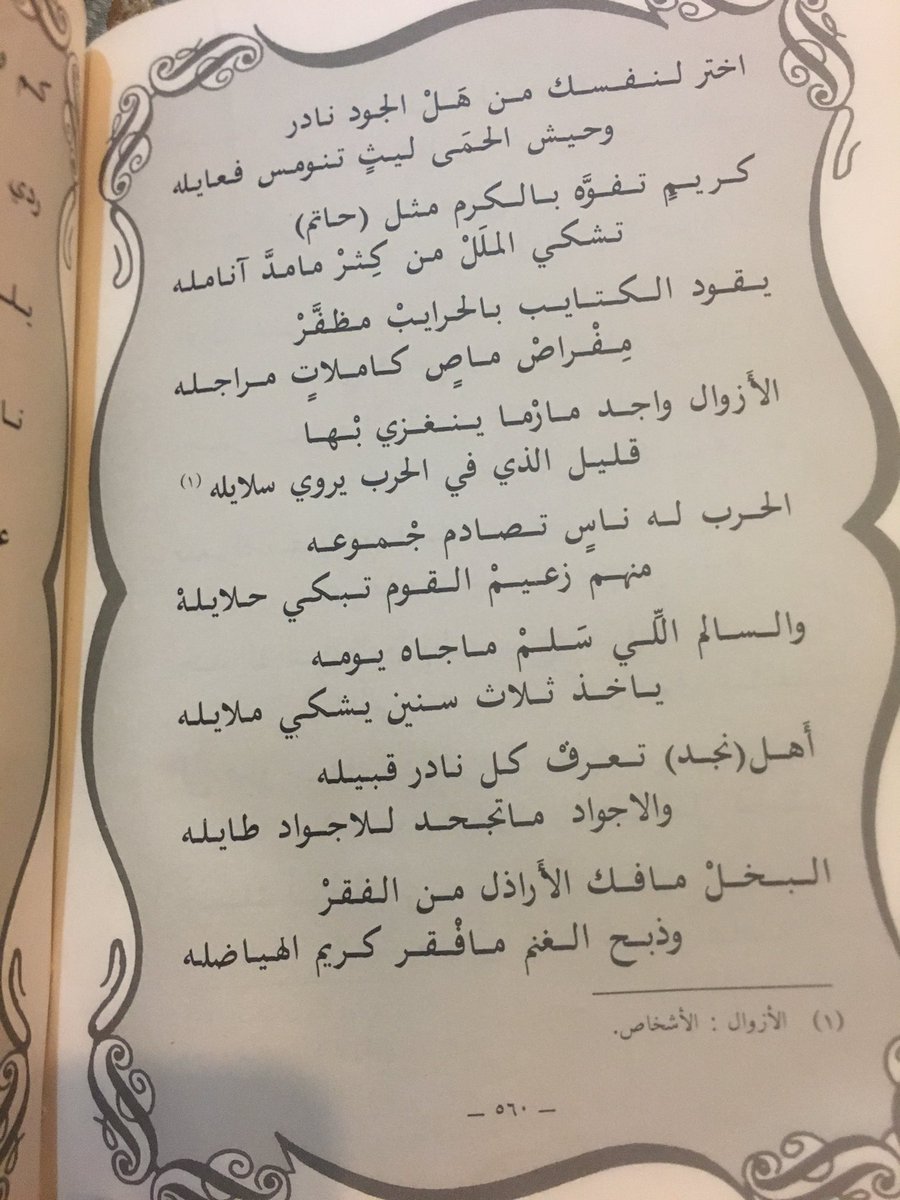 اختر لنفسك من هَلْ الجود نادر
وحيش الحمَى ليثٍ تنومس فعايله
كريمٍ تفوَّه بالكرم مثل (حاتم)
تشكي الملَلْ من كِثرْ مامدَّ آنامله
يقود الكتايب بالحرايبْ مظفَّرْ
مِفْراضْ ماصٍ كاملاتٍ مراجله
الأَزوال واجد مازْما ينغزي بْها
قليل الذي في الحرب يروي سلايله (١)
الحرب له ناسٍ تصادم جْموعه
منهم زعيمْ القوم تبكي حلايلهْ
والسالم اللّي سَلمْ ماجاه يومه
ياخذ ثلاث سنين يشكي ملايله
أَهل (نجد) تعرفْ كل نادر قبيله
والاجواد ماتجحد للاجواد طايله
البخلْ مافك الأَراذل من الفقرْ
وذبح الغنم مافْقر كريم الهياضله
(١) الأزوال : الأشخاص.
— ٥٦٠ —